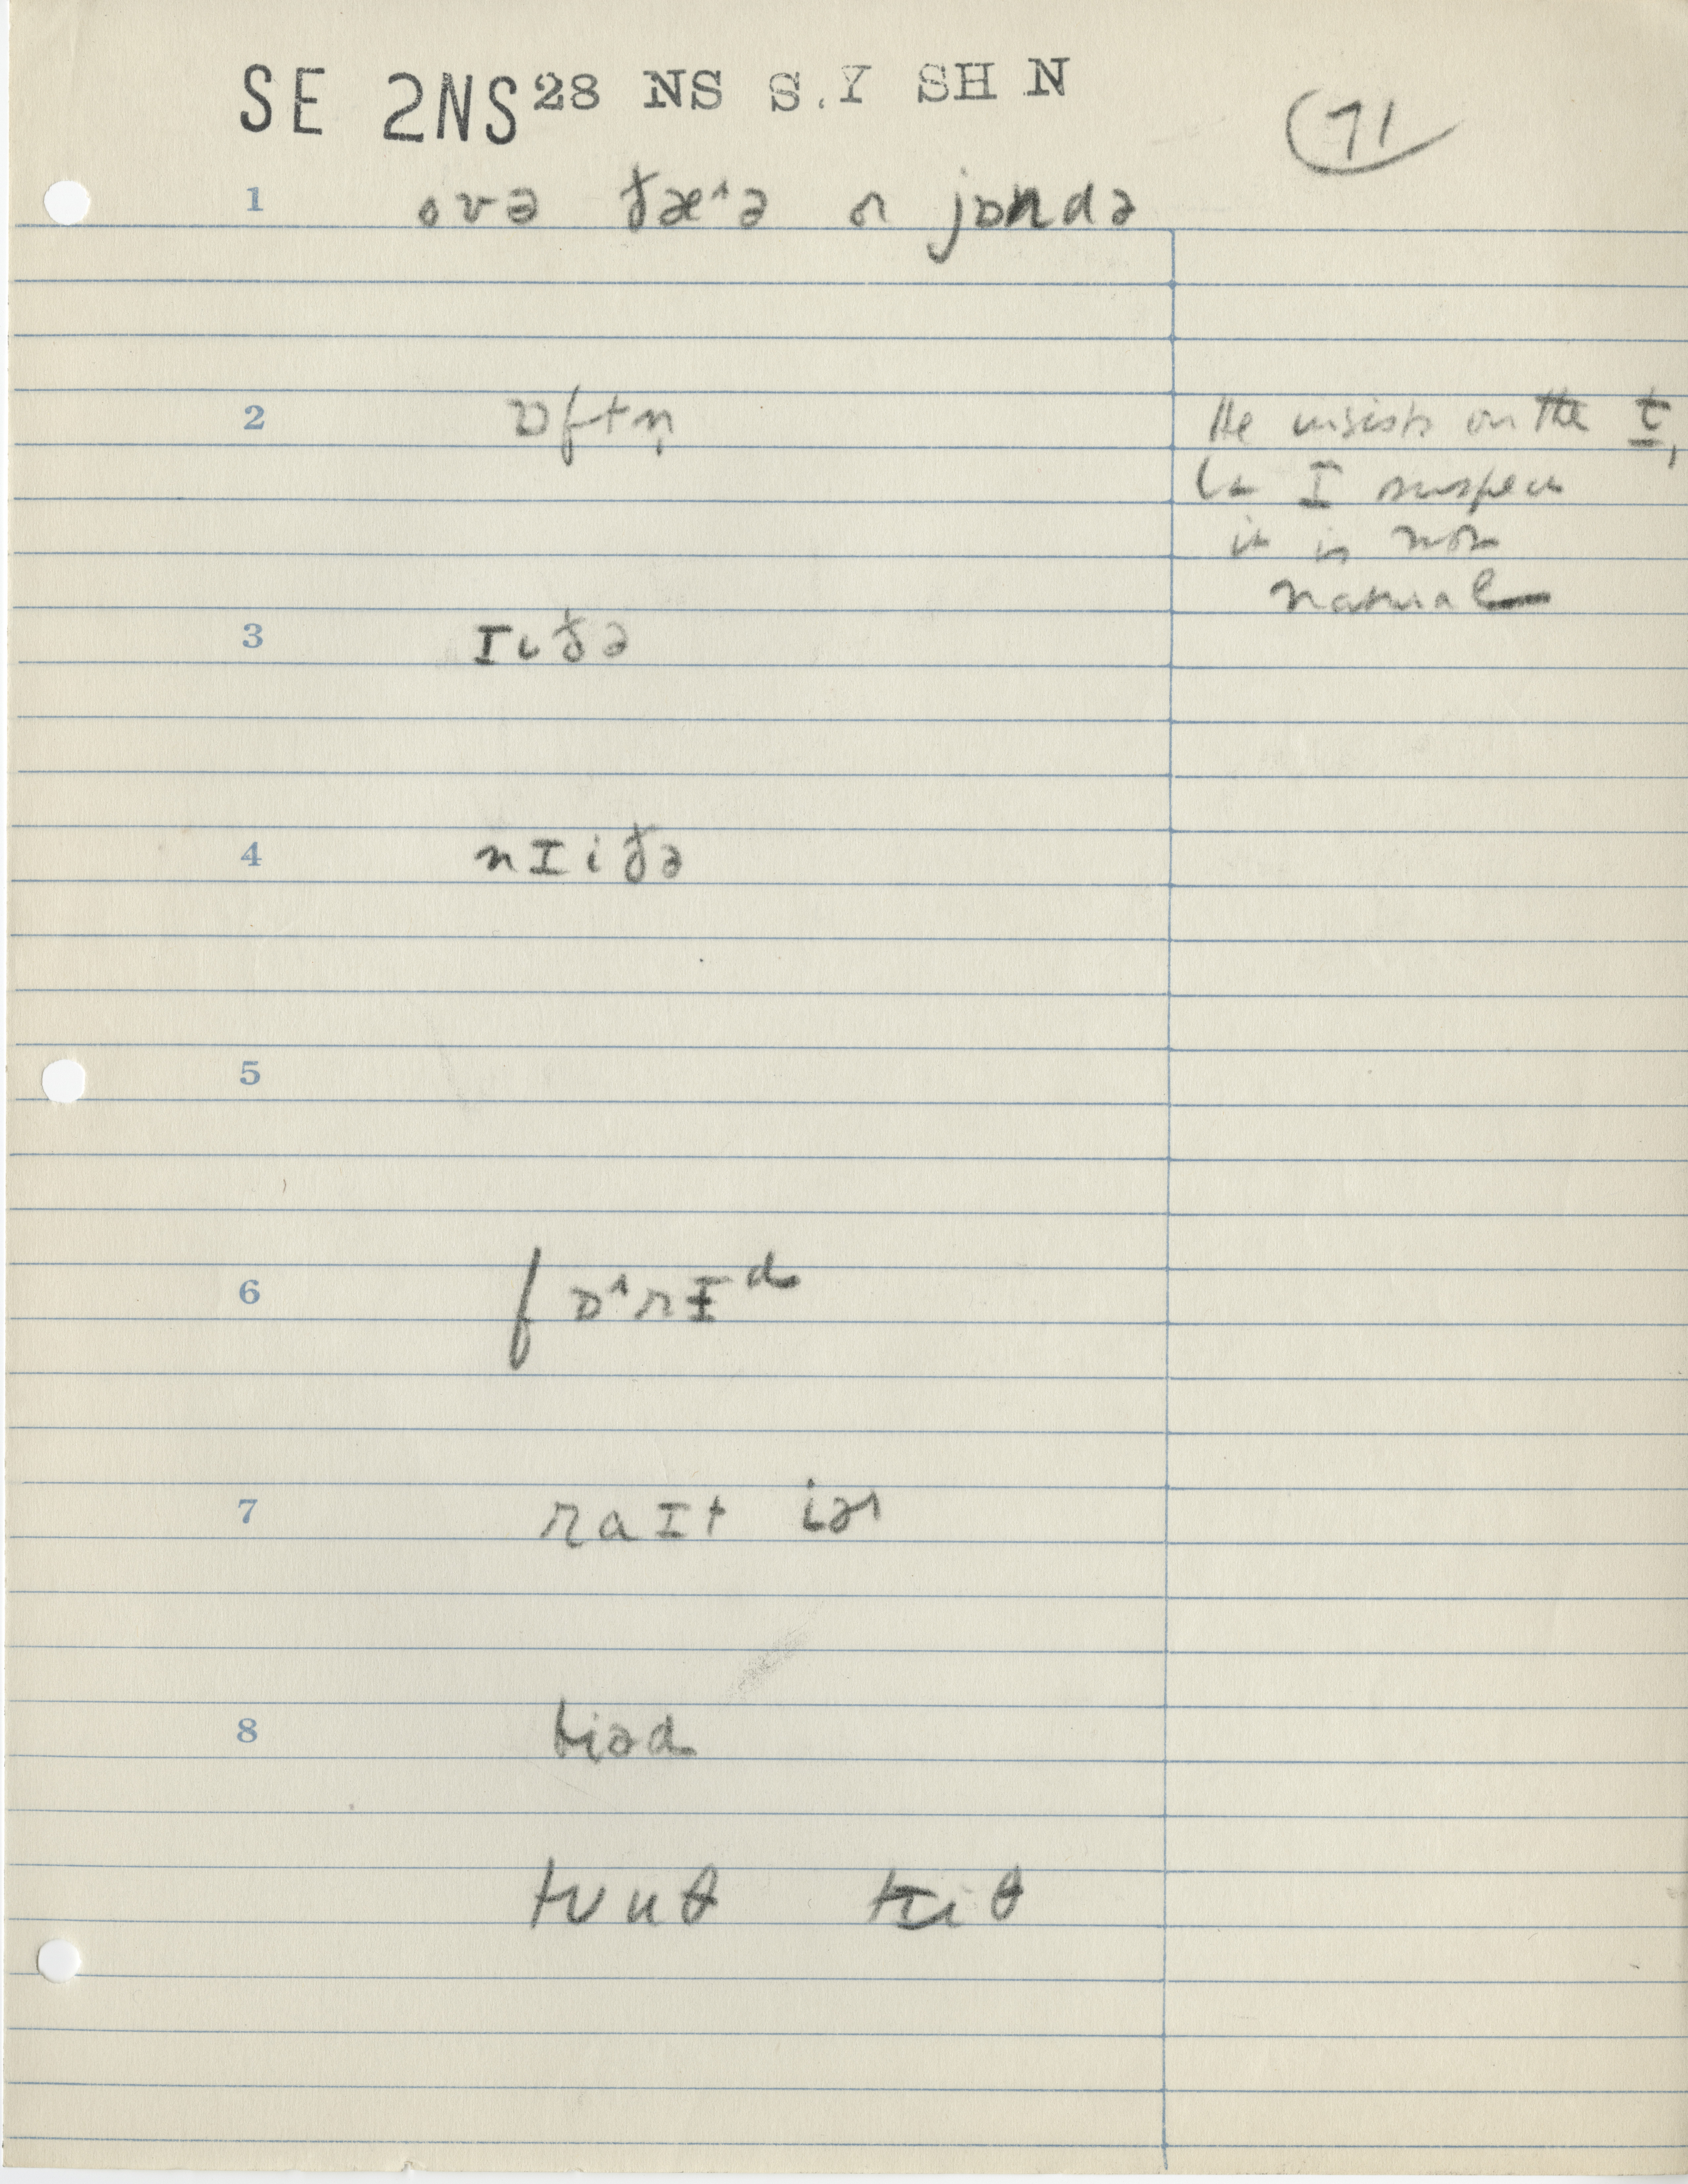 SE 2NS 28 NS S.Y SH N
71
1 ovə ðæ˄ə ɒ jɒndə
2 ɒftn̩
He insists on the t,
but I suspect
it is not
natural
3 Iiðə
4 nIiðə
5
6 fɒ˄rɪd
7 raIt iə
8 biəd
tuuθ tiiθ